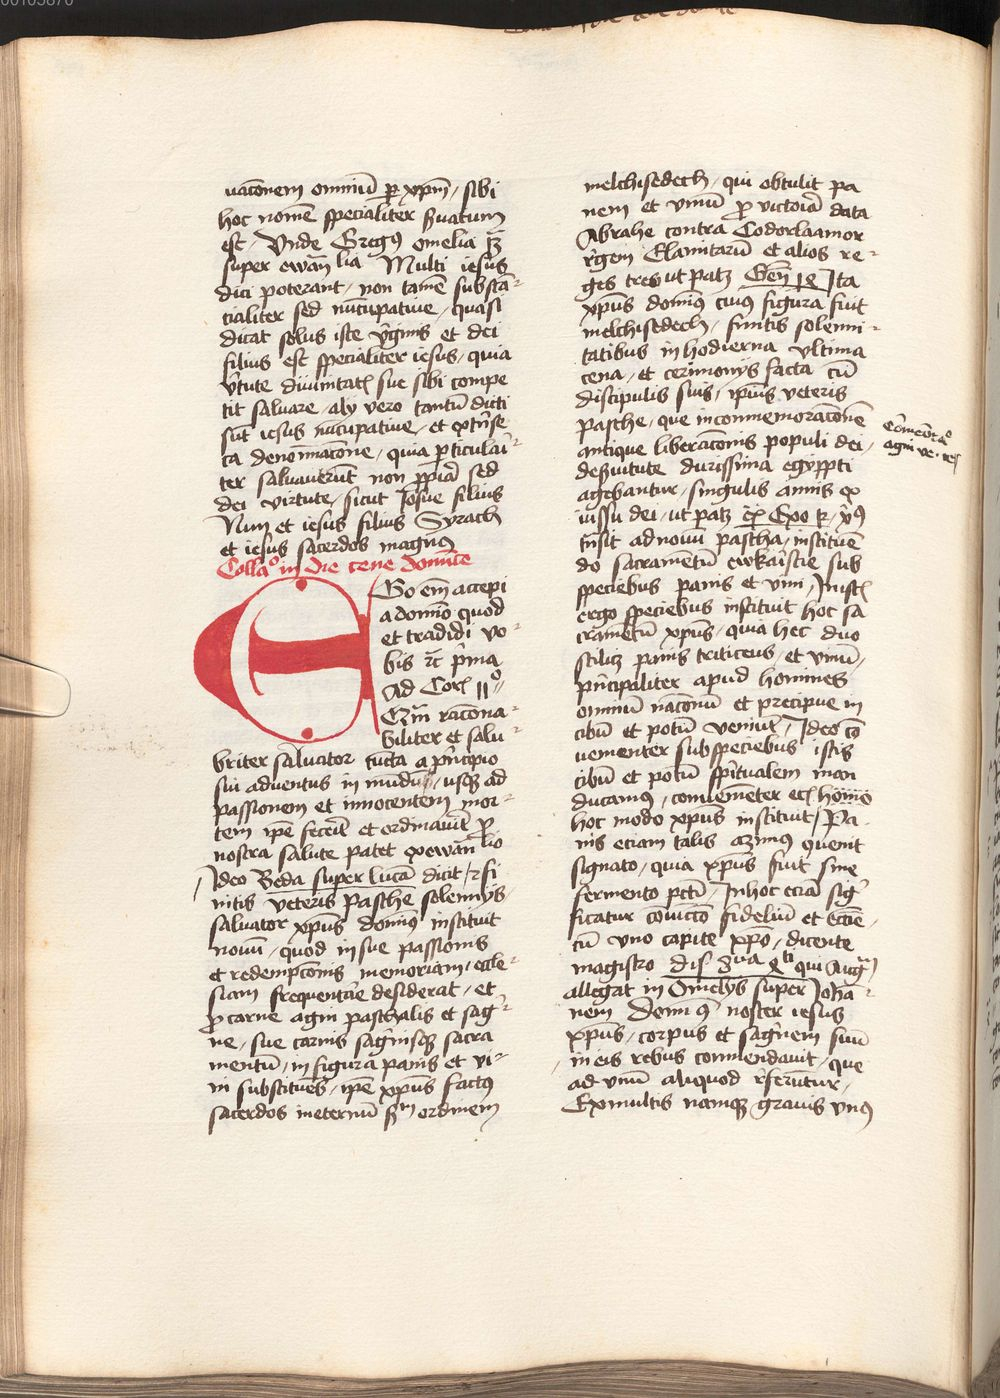 uac̄onem omniū ꝑ xp̄m, sibi
hoc nomē specialiter ẜuatum
est, Vnde Gregꝰ omelia
super ewan̄lia Multi iesus
dici poterant, non tamē substā⸗
cialiter sed nūcupatiue, quasi
dicat solus iste v̓ginis et dei
filius est specialiter iesus, quia
v̓tute diuinitatꝭ sue sibi compe
tit saluare, alij vero tantū dicti
sūt iesus nūcupatiue, et extn̓se
ca denom̄iac̄one, quia ꝑticulari⸗
ter saluauerūt non ꝓpria sed
dei virtute, sicut Josue filius
Num et iesus filius Syrach
et iesus sacerdos magnus
Collaᵒ in die cene domīce
EGo em̄ accepi
a domīo quod
et tradidi vo⸗
bis ⁊c̄ p̓ma
Ad Corꝭ 11ᵒ
Q̄m̄ racōna⸗
biliter et salu⸗
briter saluator cūcta a pn̓cipio
sui aduentus in mūdū, usqꝫ ad
passionem et innocentem mor⸗
tem ip̄e fecerit et ordinauit ꝓ
nostra salute patet ex ewan̄lio
Ideo Beda super lucā dicit, Fi
nitis veteris pasche solennijs
saluator xp̄us domin̄ꝰ instituit
nouū, quod in sue passionis
et redempc̄onis memoriam, eccle⸗
siam frequentare desiderat, et
ꝓ carne agni paschalis et sag̓⸗
ne, sue carnis sag̓nisqꝫ sacra
mentū, in figura panis et vi⸗
ni substituēs, ip̄e xp̄us factꝰ
sacerdos in eternū ẜm ordinem
melchisedech, qui obtulit pa
nem et vinū ꝓ victoria data
Abrahe contra Codorlaamor
r̓gem Elamitarū et alios re⸗
ges tres ut patꝫ Gen̄ 14 Ita
xp̄us domin̄ꝰ cuiꝰ figura fuit
melchisedech, finitis solenni⸗
tatibus in hodierna vltima
cena, et cerimonijs facta cū
discipulis suis, ip̄ius veteris
pasche, que in com̄emorac̄onē
antique liberac̄onis populi dei,
de ẜuitute durissima egypti
agebantur, singulis annis ex
iussu dei, ut patꝫ Exo
tn̄sit ad nouū pascha, instituē
do sacramētū ewkaristie sub
speciebus panis et vini, In istꝭ
ergo speciebus instituit hoc sa
cramētū xp̄us, quia hec duo
scilicꝫ panis triticeus, et vinū,
pn̓cipaliter apud homines
omniū nac̄onū et precipue in
cibū et potū veniūt, Ideo cō
uenienter sub speciebus istis
cibū et potū sp̄itualem man
ducamꝰ, conuenienter
hoc modo xp̄us instituit, Pa
nis eciam talis azimꝰ
signato, quia xp̄us fuit sine
fermento pctī, In hoc eciā sig̓
ficatur fideliū et
cū vno capite xp̄o, dicente
magistro dis qui Aug̓
allegat in Omelijs super Joha⸗
nem Domi nꝰ noster iesus
xp̄us, corpus et sag̓nem suū
in eis rebus com̄endauit, que
ad vnū aliquod r̓feruntur,
Ex multis namqꝫ granis vnꝰ
agni ve